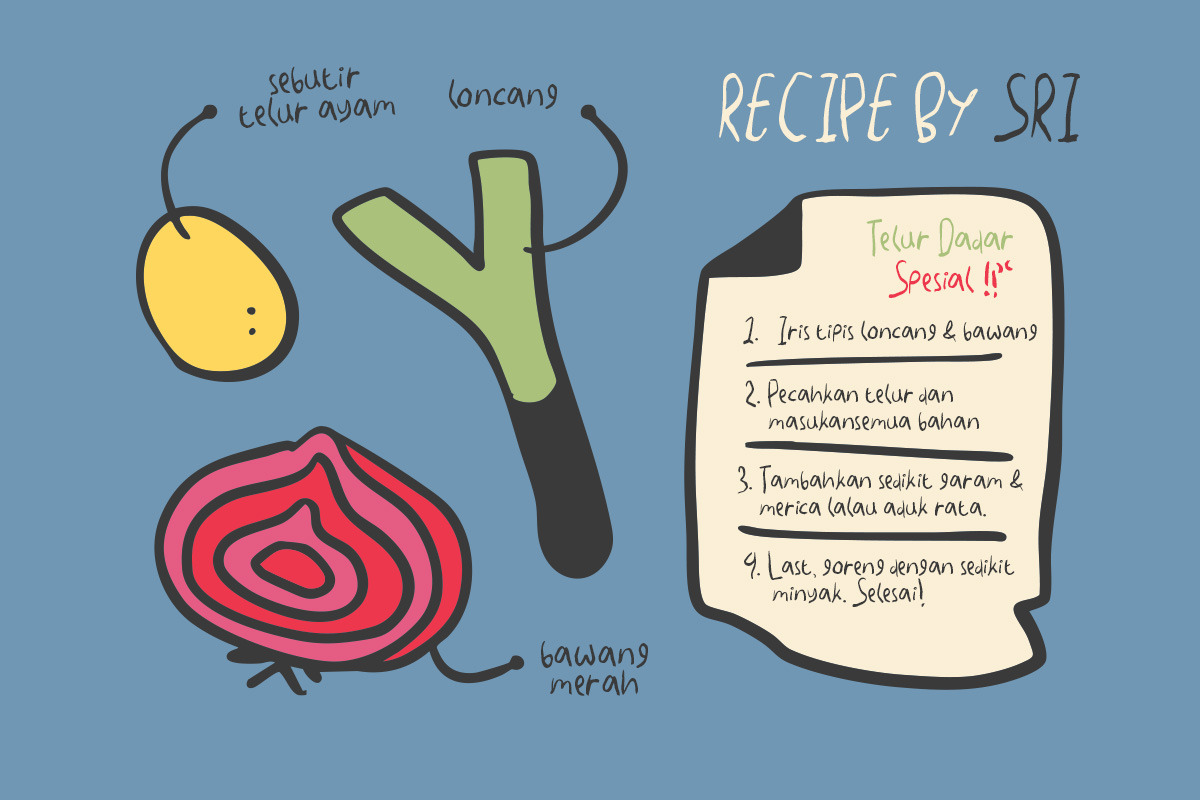 sebutir
telur ayam
loncang
RECIPE BY SRI
Telur Dadar
Spesial !!
1. Iris tipis loncang & bawang
2. Pecahkan telur dan
masukansemua bahan
3. Tambahkan sedikit garam &
merica lalau aduk rata.
4. Last, goreng dengan sedikit
minyak. Selesai!
bawang
merah